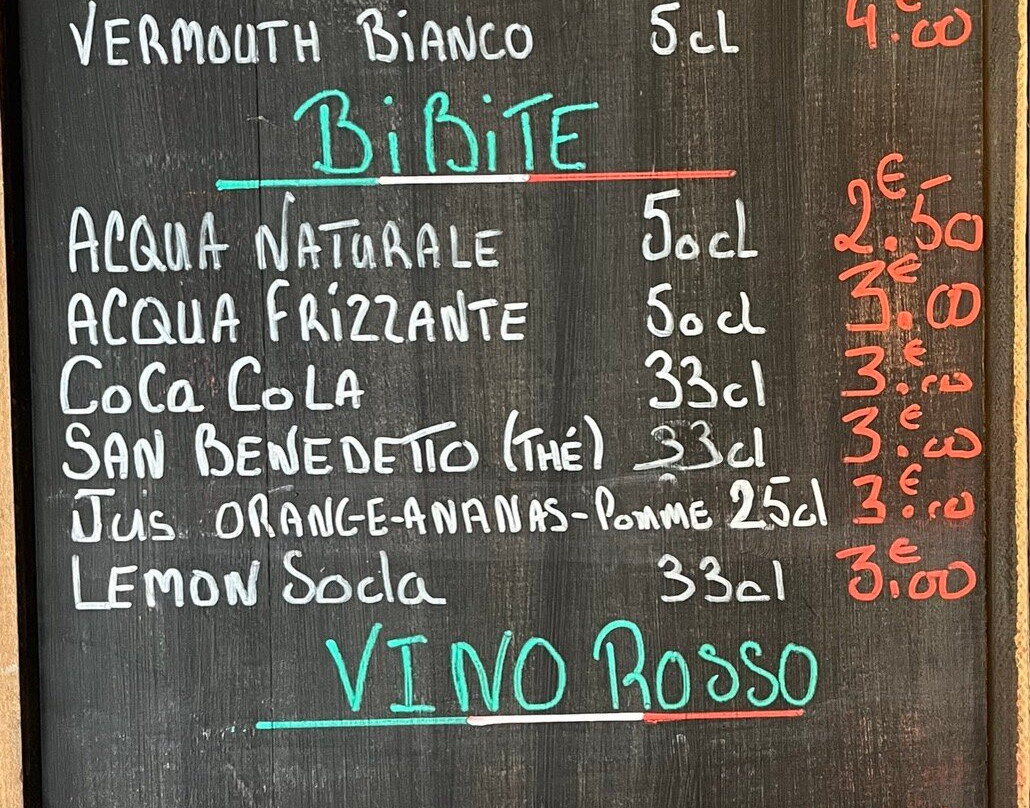 VERMOUTH BiANCO 5cl 4.€00
BiBiTE
ACQUA NATURALE 50cl 2.€50
ACQUA FRiZZANTE 50cl 3.€00
CoCa CoLA 33cl 3.€00
SAN BENEDETTO (THÉ) 33cl 3.€00
Jus ORANGE-ANANAS-PoMME 25cl 3.€00
LEMON Soda 33cl 3.€00
VINO ROSSO